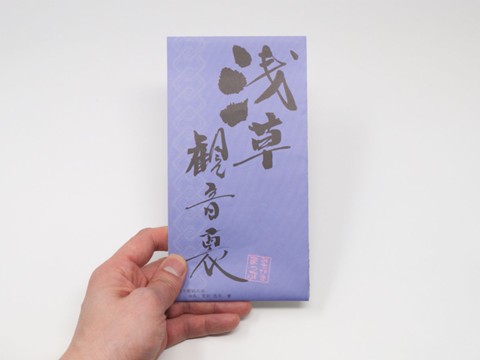 浅草
観音裏